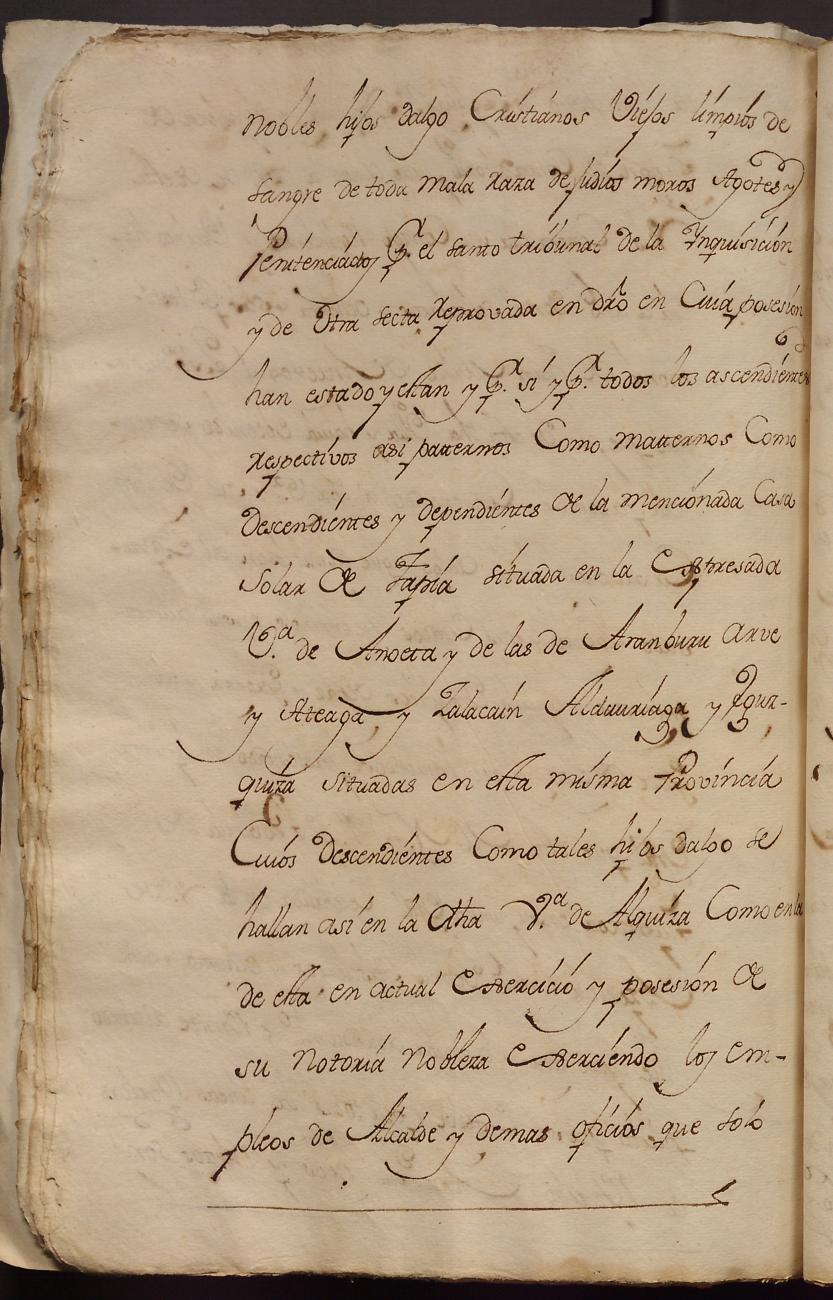 Nobles hijos dalgo Cristianos Viejos limpios de
sangre de toda mala raza de Judios moros Agotes y
Penitenciados pr. el santo tribunal de la Ynquisicion
y de Otra secta reprovada en dro en Cuia posesion
han estado y estan y pr. si y pr. todos los ascendientes
respectivos asi patternos Como matternos Como
Descendientes y dependientes de la mencionada Casa
Solar de Tapia situada en la Expresada
V.a de Anoeta y de las de Aranburu Arve
y Ateaga y Zalacain Aldauriaga y Ygur-
quiza situadas en esta misma Provincia
Cuios Descendientes Como tales hijos dalgo se
hallan asi en la dha V.a de Alquiza Como en la
de esta en actual Exercicio y posesion de
su notoria nobleza Exerciendo los em-
pleos de Alcalde y demas oficios que solo